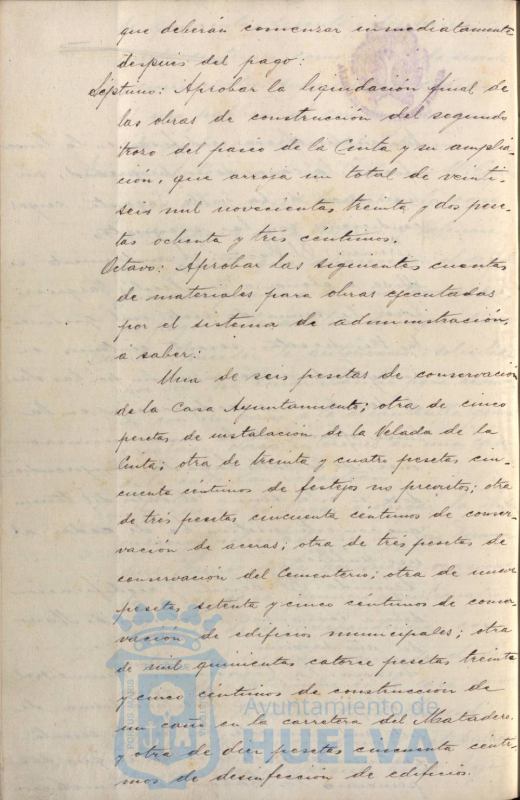 que deberán comenzar inmediatamente
después del pago.
Séptimo: Aprobar la liquidación final de
las obras de construcción del segundo
trozo del paseo de la Cinta y su amplia-
ción, que arroja un total de veinti-
seis mil novecientas treinta y dos pese-
tas ochenta y tres céntimos.
Octavo: Aprobar las siguientes cuentas
de materiales para obras ejecutadas
por el sistema de administración,
á saber:
Una de seis pesetas de conservación
de la Casa Ayuntamiento; otra de cinco
pesetas de instalación de la Velada de la
Cinta; otra de treinta y cuatro pesetas cin-
cuenta céntimos de festejos no previstos; otra
de tres pesetas cincuenta céntimos de conser-
vación de aceras; otra de tres pesetas de
conservación del Cementerio; otra de nueve
pesetas setenta y cinco céntimos de conser-
vación de edificios municipales; otra
de mil quinientas catorce pesetas treinta
y cinco céntimos de construcción de
un caño en la carretera del Matadero,
y otra de diez pesetas cincuenta cénti-
mos de desinfección de edificios.
Ayuntamiento de
HUELVA